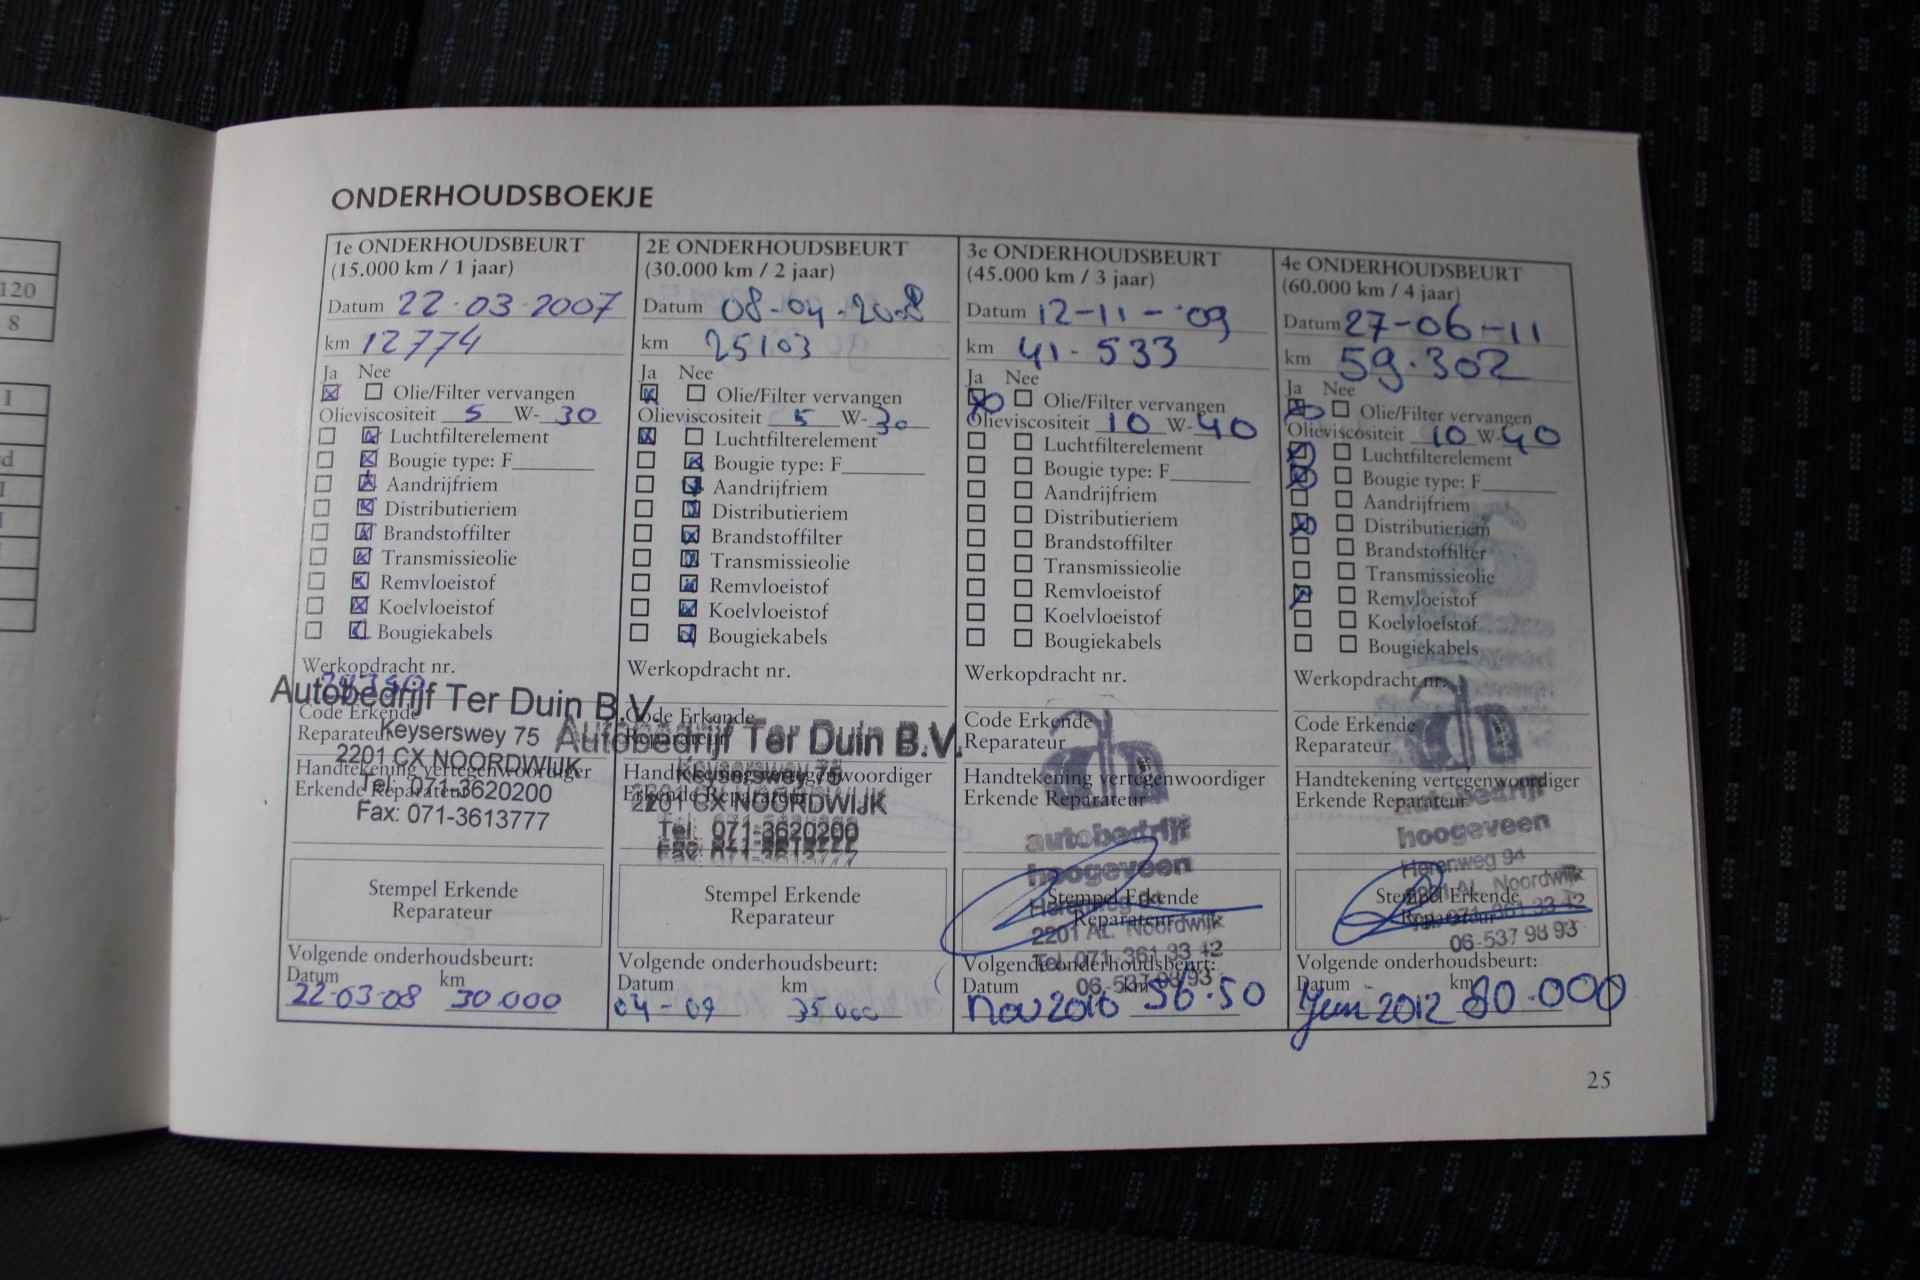 120
8
1
d
ONDERHOUDSBOEKJE
1e ONDERHOUDSBEURT
(15.000 km / 1 jaar)
Datum 22-03-2007
km 12774
Ja Nee
Olie/Filter vervangen
Olieviscositeit 5 W- 30
Luchtfilterelement
Bougie type: F
Aandrijfriem
Distributieriem
Brandstoffilter
Transmissieolie
Remvloeistof
Koelvloeistof
Bougiekabels
Werkopdracht nr.
Autobedrijf Ter Duin B.V.
Code Erkende
Reparateur
Keyserswey 75
2201 CX NOORDWIJK
Handtekening vertegenwoordiger
Erkende Reparateur
Tel: 071-3620200
Fax: 071-3613777
Stempel Erkende
Reparateur
Volgende onderhoudsbeurt:
Datum km
22-03-08 30.000
2E ONDERHOUDSBEURT
(30.000 km / 2 jaar)
Datum 08-04-2008
km 25103
Ja Nee
Olie/Filter vervangen
Olieviscositeit 5 W- 30
Luchtfilterelement
Bougie type: F
Aandrijfriem
Distributieriem
Brandstoffilter
Transmissieolie
Remvloeistof
Koelvloeistof
Bougiekabels
Werkopdracht nr.
Code Erkende
Reparateur
Autobedrijf Ter Duin B.V.
Handtekening vertegenwoordiger
Keyserswey 75
Erkende Reparateur
2201 CX NOORDWIJK
Tel: 071-3620200
Stempel Erkende
Reparateur
Volgende onderhoudsbeurt:
Datum km
04-09 35000
3e ONDERHOUDSBEURT
(45.000 km / 3 jaar)
Datum 12-11-'09
km 41.533
Ja Nee
Olie/Filter vervangen
Olieviscositeit 10 W- 40
Luchtfilterelement
Bougie type: F
Aandrijfriem
Distributieriem
Brandstoffilter
Transmissieolie
Remvloeistof
Koelvloeistof
Bougiekabels
Werkopdracht nr.
Code Erkende
Reparateur
Handtekening vertegenwoordiger
Erkende Reparateur
autobedrijf
hoogeveen
Stempel Erkende
Herenweg 94
Reparateur
2201 AL Noordwijk
Tel. 071 361 33 42
Volgende onderhoudsbeurt:
06-537 98 93
Datum km
Nov 2010 56.50
4e ONDERHOUDSBEURT
(60.000 km / 4 jaar)
Datum 27-06-11
km 59.302
Ja Nee
Olie/Filter vervangen
Olieviscositeit 10 W- 40
Luchtfilterelement
Bougie type: F
Aandrijfriem
Distributieriem
Brandstoffilter
Transmissieolie
Remvloeistof
Koelvloeistof
Bougiekabels
Werkopdracht nr.
Code Erkende
Reparateur
Handtekening vertegenwoordiger
Erkende Reparateur
autobedrijf
hoogeveen
Herenweg 94
2201 AL Noordwijk
Stempel Erkende
Reparateur
Tel. 071 361 33 42
06-537 98 93
Volgende onderhoudsbeurt:
Datum km
Juni 2012 80.000
25